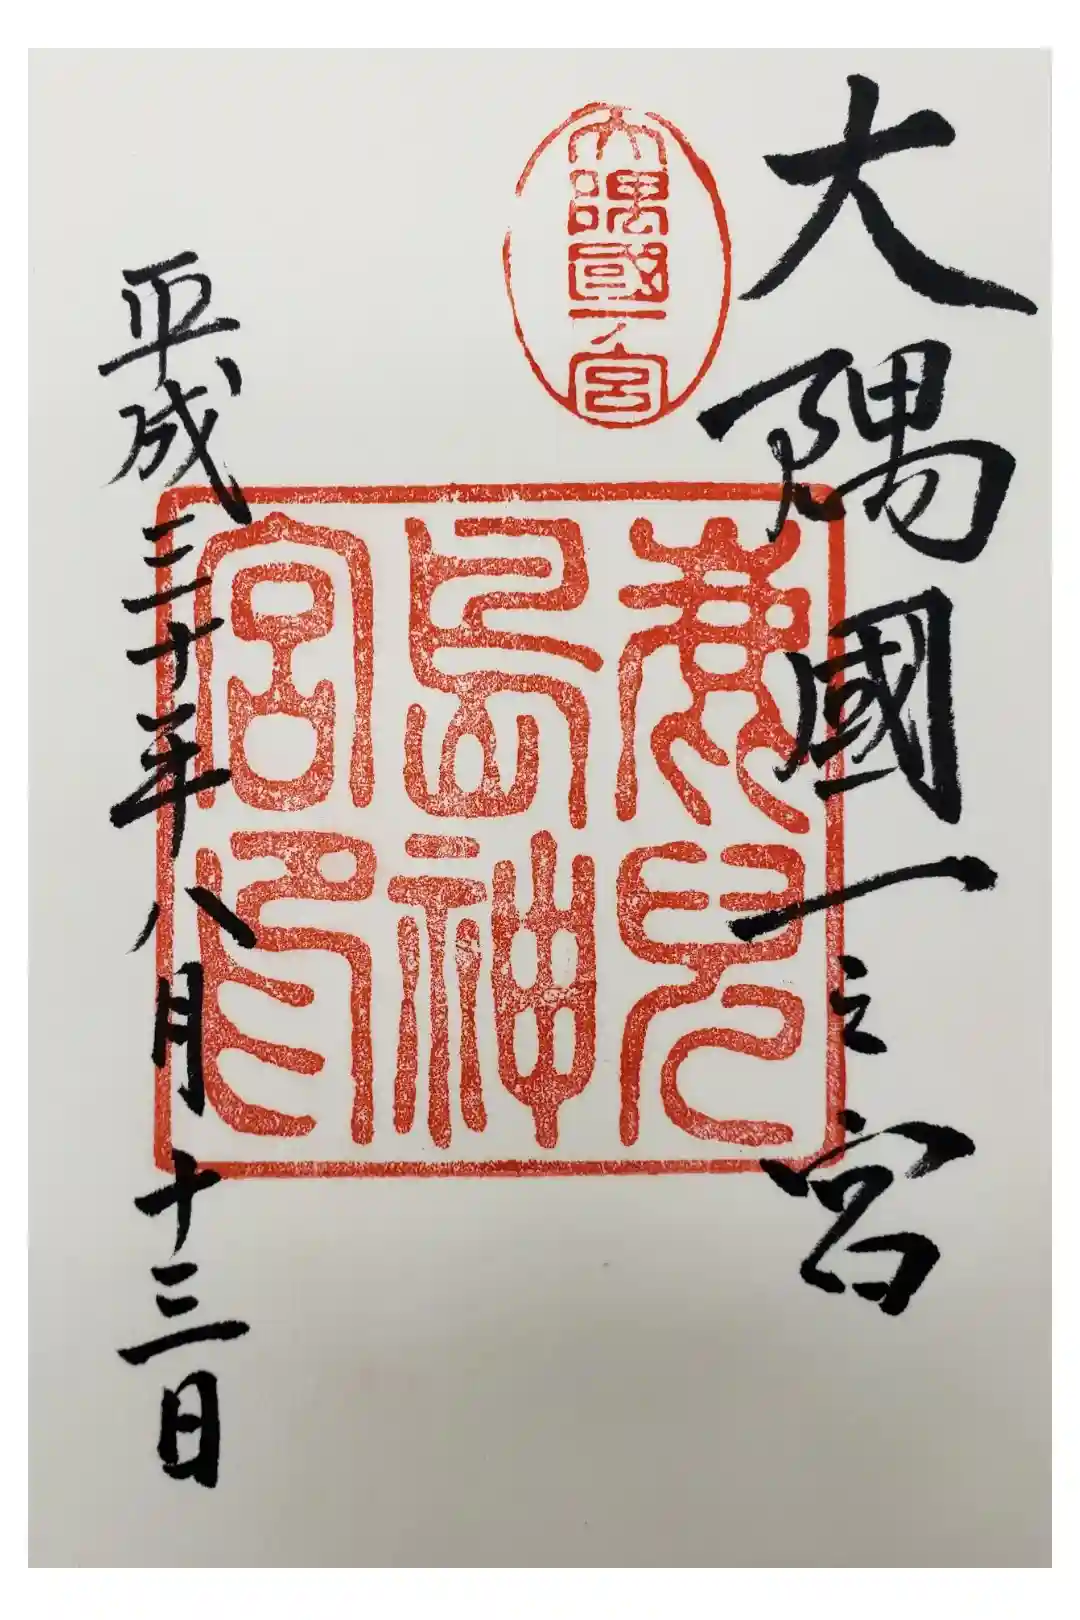 大隅國一之宮
大隅國一ノ宮
鹿兒
島神
宮印
平成三十年八月十三日